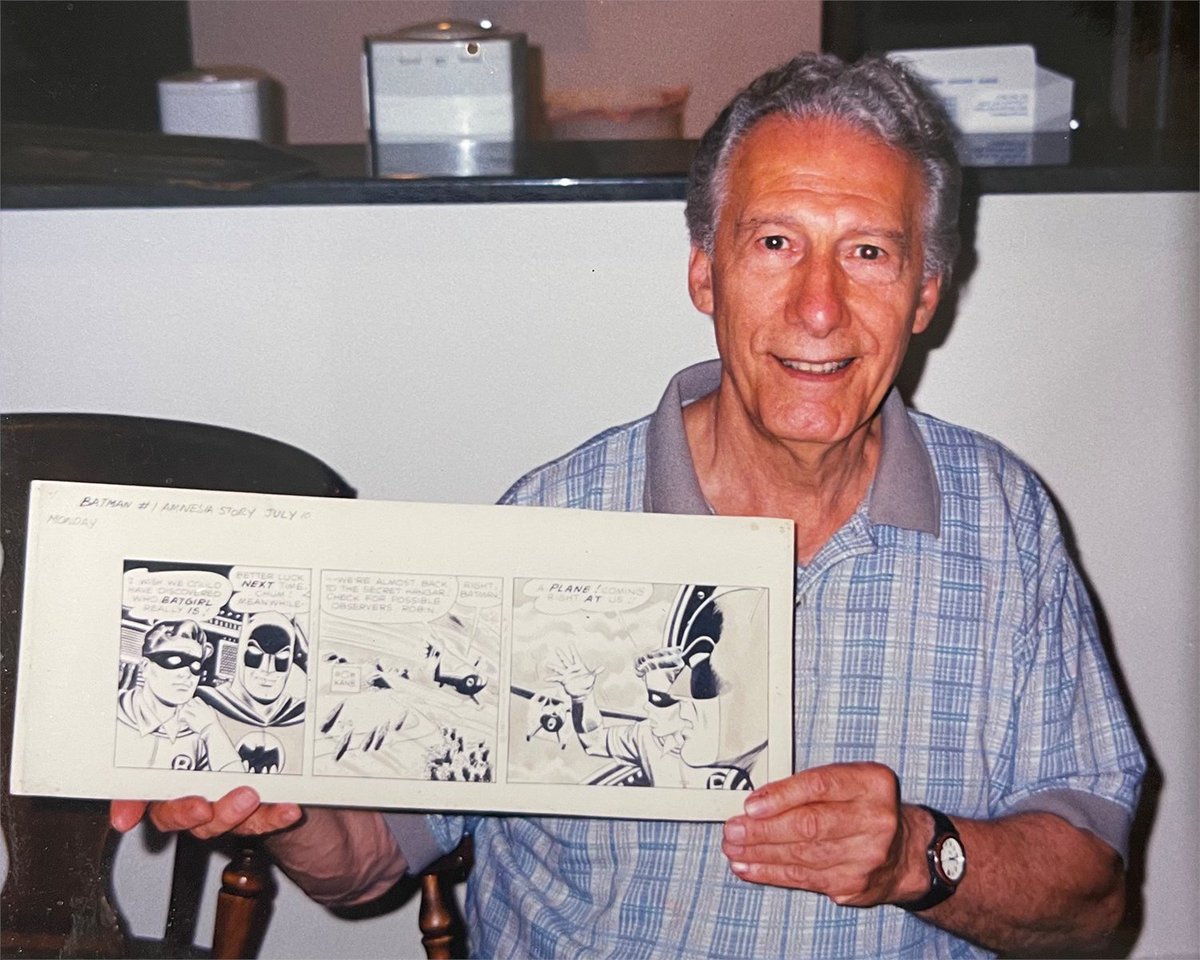 BATMAN #1 AMNESIA STORY JULY 10
MONDAY
I WISH WE COULD
HAVE DISCOVERED
WHO BATGIRL
REALLY IS!
BETTER LUCK
NEXT TIME,
CHUM!
MEANWHILE-
--WE'RE ALMOST BACK
TO THE SECRET HANGAR.
CHECK FOR POSSIBLE
OBSERVERS, ROBIN.
RIGHT,
BATMAN.
BOB
KANE
A PLANE! COMING
RIGHT AT US!
R